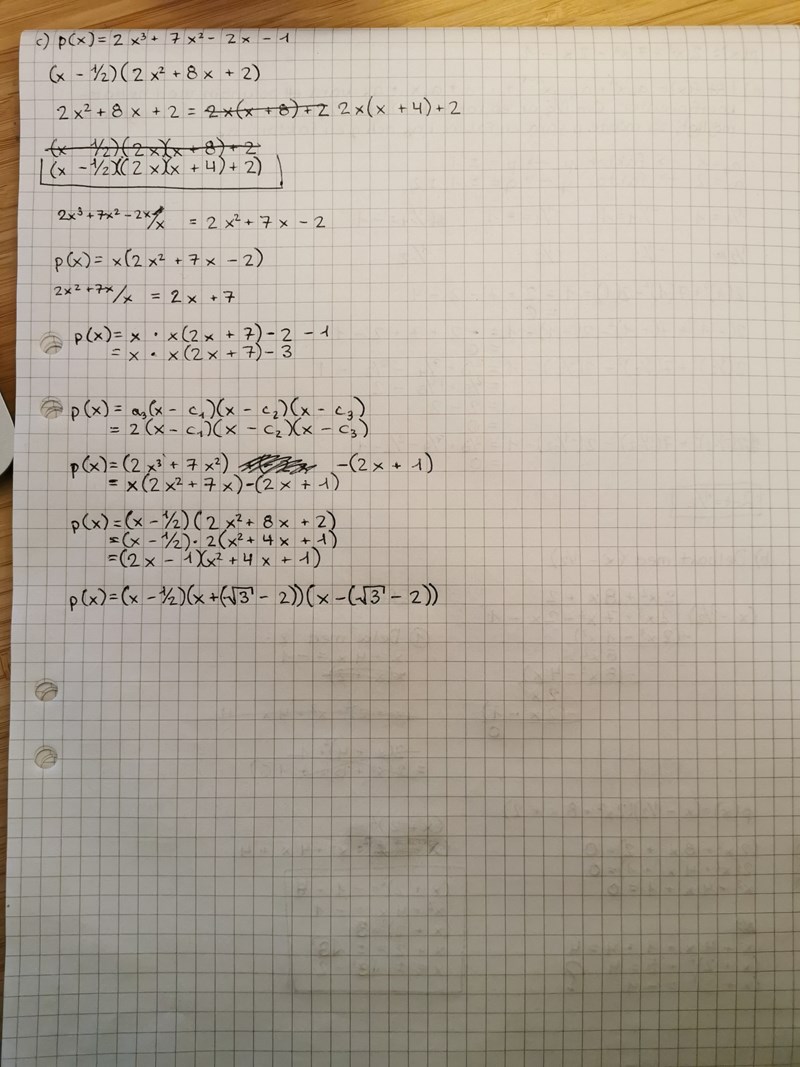 c) p(x) = 2x³ + 7x² - 2x - 1
(x - 1/2)(2x² + 8x + 2)
2x² + 8x + 2 = 2x(x + 8) + 2 2x(x + 4) + 2
(x - 1/2)(2x)(x + 8) + 2
(x - 1/2)((2x)(x + 4) + 2)
2x³ + 7x² - 2x/x = 2x² + 7x - 2
p(x) = x(2x² + 7x - 2)
2x² + 7x/x = 2x + 7
p(x) = x · x(2x + 7) - 2 - 1
= x · x(2x + 7) - 3
p(x) = a₃(x - c₁)(x - c₂)(x - c₃)
= 2(x - c₁)(x - c₂)(x - c₃)
p(x) = (2x³ + 7x²) -(2x + 1)
= x(2x² + 7x) - (2x + 1)
p(x) = (x - 1/2)(2x² + 8x + 2)
= (x - 1/2) · 2(x² + 4x + 1)
= (2x - 1)(x² + 4x + 1)
p(x) = (x - 1/2)(x + (√3 - 2))(x - (√3 - 2))